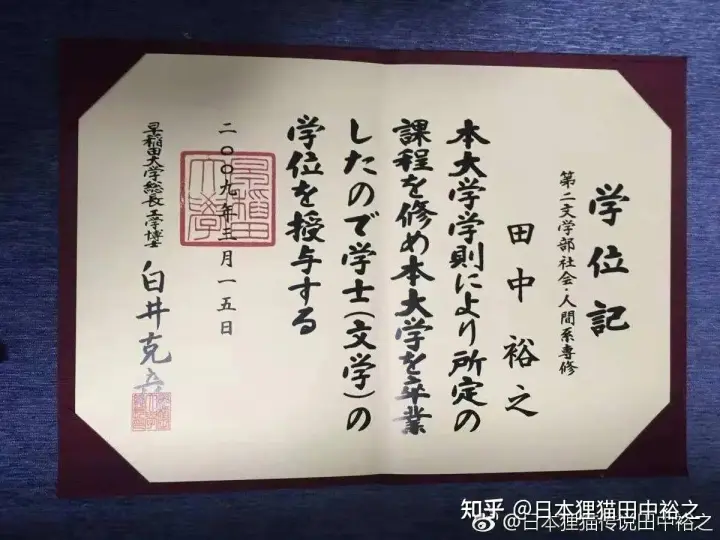 学位記
第二文学部社会・人間系専修
田中裕之
本大学学則により所定の
課程を修め本大学を卒業
したので学士(文学)の
学位を授与する
二〇〇九年三月一五日
早稲田大学
早稲田大学総長 工学博士 白井克彦
知乎 @日本狸猫田中裕之
@日本狸猫传说田中裕之